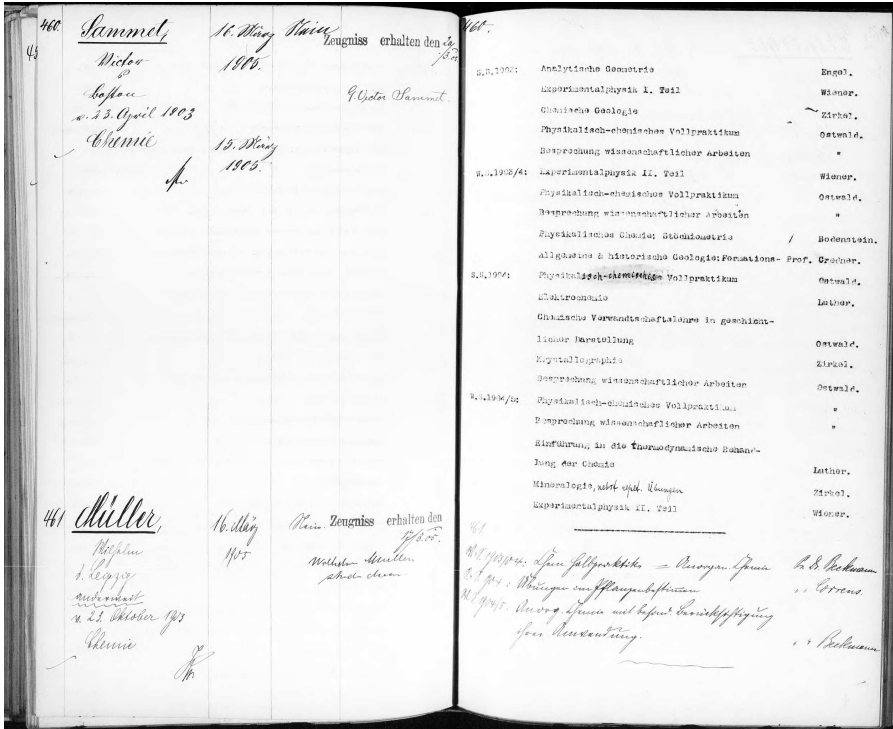 460.
Sammet,
16. März
Nein
Zeugniss erhalten den 20/3.05.
Victor
1905.
Boston
G. Victor Sammet.
v. 23. April 1903
Chemie
15. März
1905.
461
Müller,
16. März
Nein.
Zeugniss erhalten den
Wilhelm
1905
Wilhelm Müller
d. Leipzig
anderweit
v. 23. Oktober 1903
Chemie
460.
S.S.1903: Analytische Geometrie Engel.
Experimentalphysik I. Teil Wiener.
Chemische Geologie Zirkel.
Physikalisch-chemisches Vollpraktikum Ostwald.
Besprechung wissenschaftlicher Arbeiten "
W.S.1903/4: Experimentalphysik II. Teil Wiener.
Physikalisch-chemisches Vollpraktikum Ostwald.
Besprechung wissenschaftlicher Arbeiten "
Physikalisches Chemie: Stöchiometrie Bodenstein.
Allgemeine & historische Geologie:Formations- Prof. Credner.
S.S.1904: Physikalisch-chemisches Vollpraktikum Ostwald.
Elektrochemie Luther.
Chemische Verwandtschaftslehre in geschicht-
licher Darstellung Ostwald.
Krystallographie Zirkel.
Besprechung wissenschaftlicher Arbeiten Ostwald.
W.S.1904/5: Physikalisch-chemisches Vollpraktikum "
Besprechung wissenschaftlicher Arbeiten "
Einführung in die thermodynamische Behand-
lung der Chemie Luther.
Mineralogie, nebst Übungen Zirkel.
Experimentalphysik II. Teil Wiener.
461
W.S.1903/04: Chem Halbpraktik. = Anorgan. Chemie Beckmann
S.S.1904: Übungen im Pflanzenbestimmen " " Correns.
W.S.1904/5: Anorg. Chemie mit besond. Berücksichtigung
ihrer Anwendung. " " Beckmann